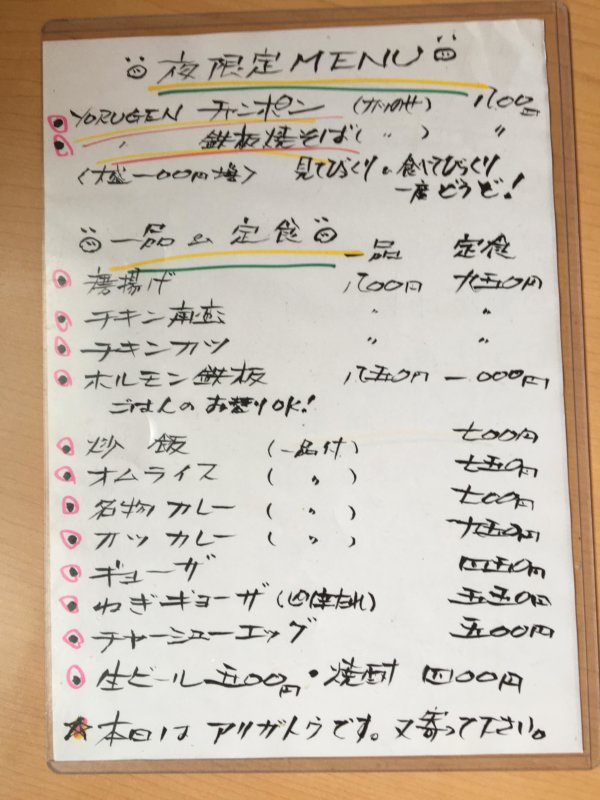 夜限定MENU
YORUGEN チャンポン (カツのせ) 八00円
〃 鉄板焼そば(〃) 〃
〈大盛一00円増〉 見てびっくり。食べてびっくり
一度どうぞ!
一品 & 定食 一品 定食
唐揚げ 八00円 九五0円
チキン南蛮 〃 〃
チキンカツ 〃 〃
ホルモン鉄板 八五0円 一000円
ごはんのお替りOK!
炒飯 (一品付) 七00円
オムライス (〃) 七五0円
名物カレー (〃) 七00円
カツカレー (〃) 九五0円
ギョーザ 四五0円
ねぎギョーザ 五五0円
チャーシューエッグ 五00円
生ビール 五00円・焼酎 四00円
★本日はアリガトウです。又寄って下さい。